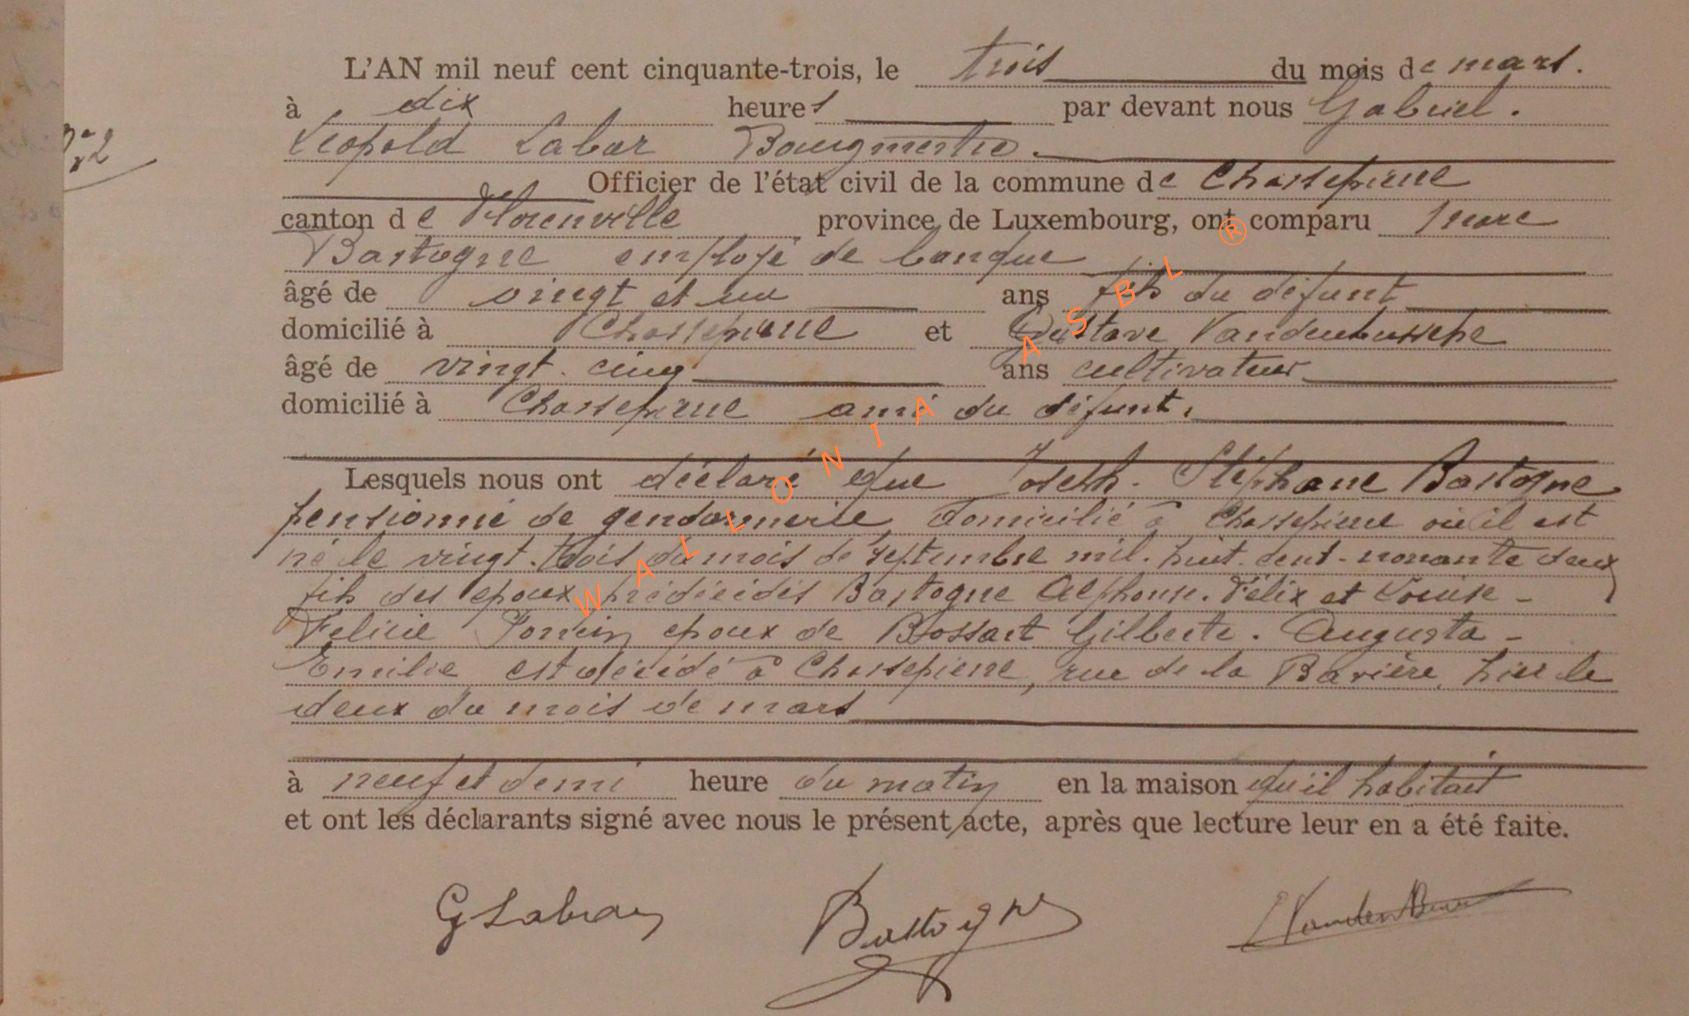 L'AN mil neuf cent cinquante-trois, le trois du mois de mars.
à dix heures par devant nous Gabriel.
Léopold Bourgmestre.
Officier de l'état civil de la commune de Chassepierre
canton de Florenville province de Luxembourg, ont comparu Marc
Bastogne employé de banque
âgé de vingt et un ans fils du défunt
domicilié à Chassepierre et Gustave Vandenbussche
âgé de vingt-cinq ans cultivateur
domicilié à Chassepierre ami du défunt.
Lesquels nous ont déclaré que Joseph-Stéphane Bastogne
pensionné de gendarmerie domicilié à Chassepierre où il est
né le vingt-trois du mois de septembre mil-huit-cent-nonante deux
fils des époux prédécédés Bastogne Alphonse-Félix et Louise-
Félicie époux de Bossart Gilberte-Augusta-
Emilie est décédé à Chassepierre, rue de la Barière, hier le
deux du mois de mars
à neuf et demi heure du matin en la maison qu'il habitait
et ont les déclarants signé avec nous le présent acte, après que lecture leur en a été faite.
Bastogne
WALLONIA ASBL ®